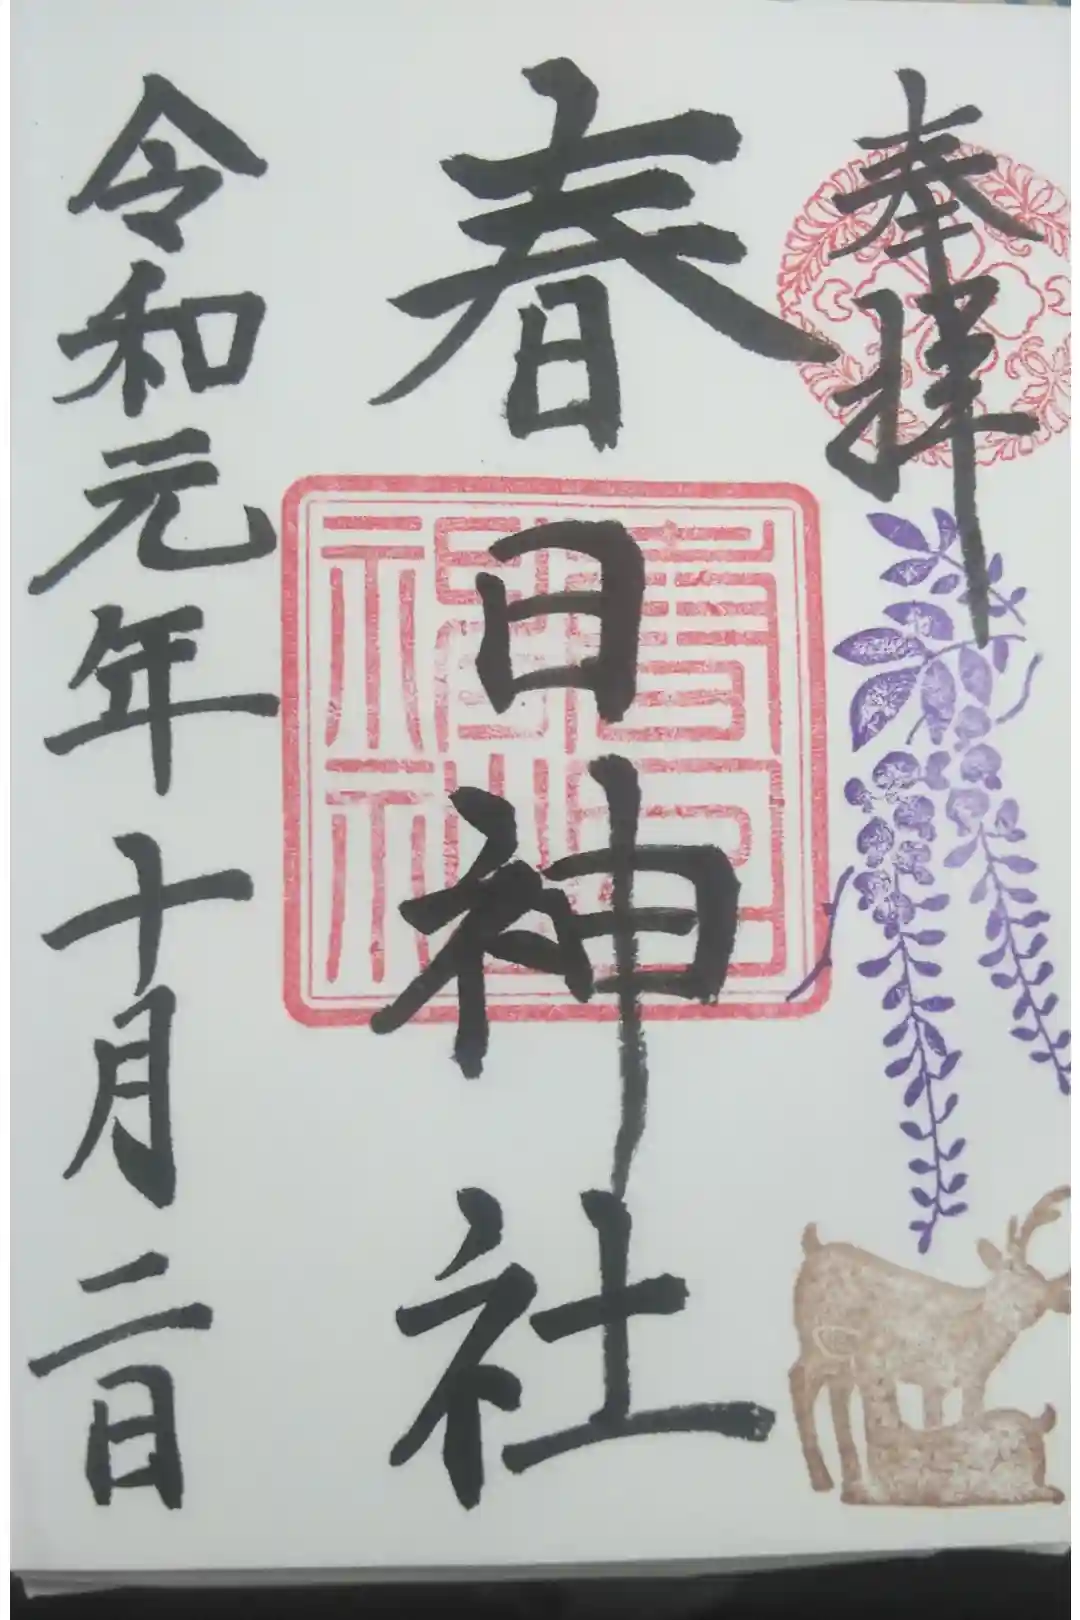 奉拝
春日神社
春日神社
令和元年十月二日